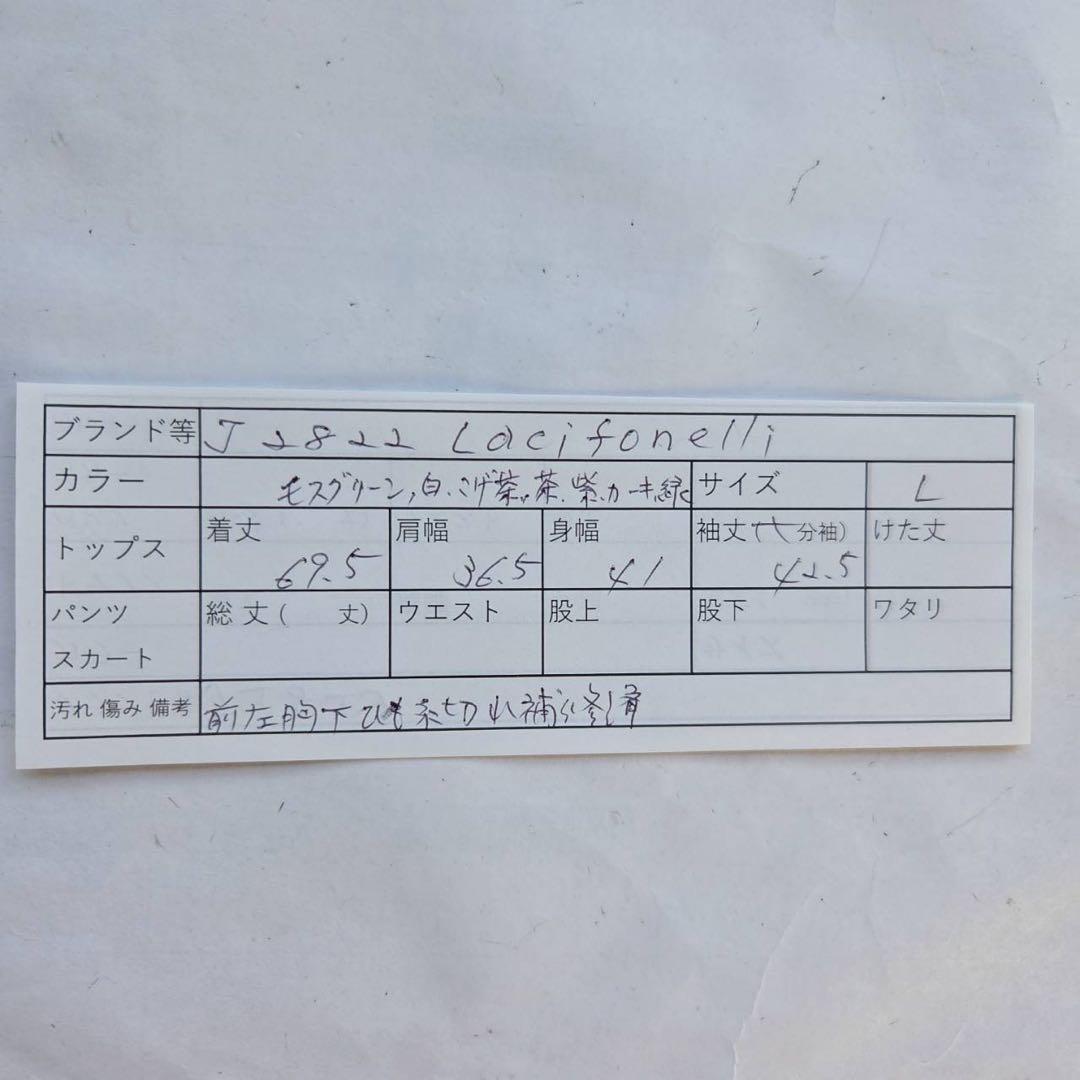 ブランド等 J2822 Lacifonelli
カラー モスグリーン,白、こげ茶、茶、紫、カーキ、緑 サイズ L
トップス 着丈 69.5 肩幅 36.5 身幅 41 袖丈(七分袖) 42.5 けた丈
パンツ スカート 総丈( 丈) ウエスト 股上 股下 ワタリ
汚れ 傷み 備考 前左胸下ひも糸切れ補修済